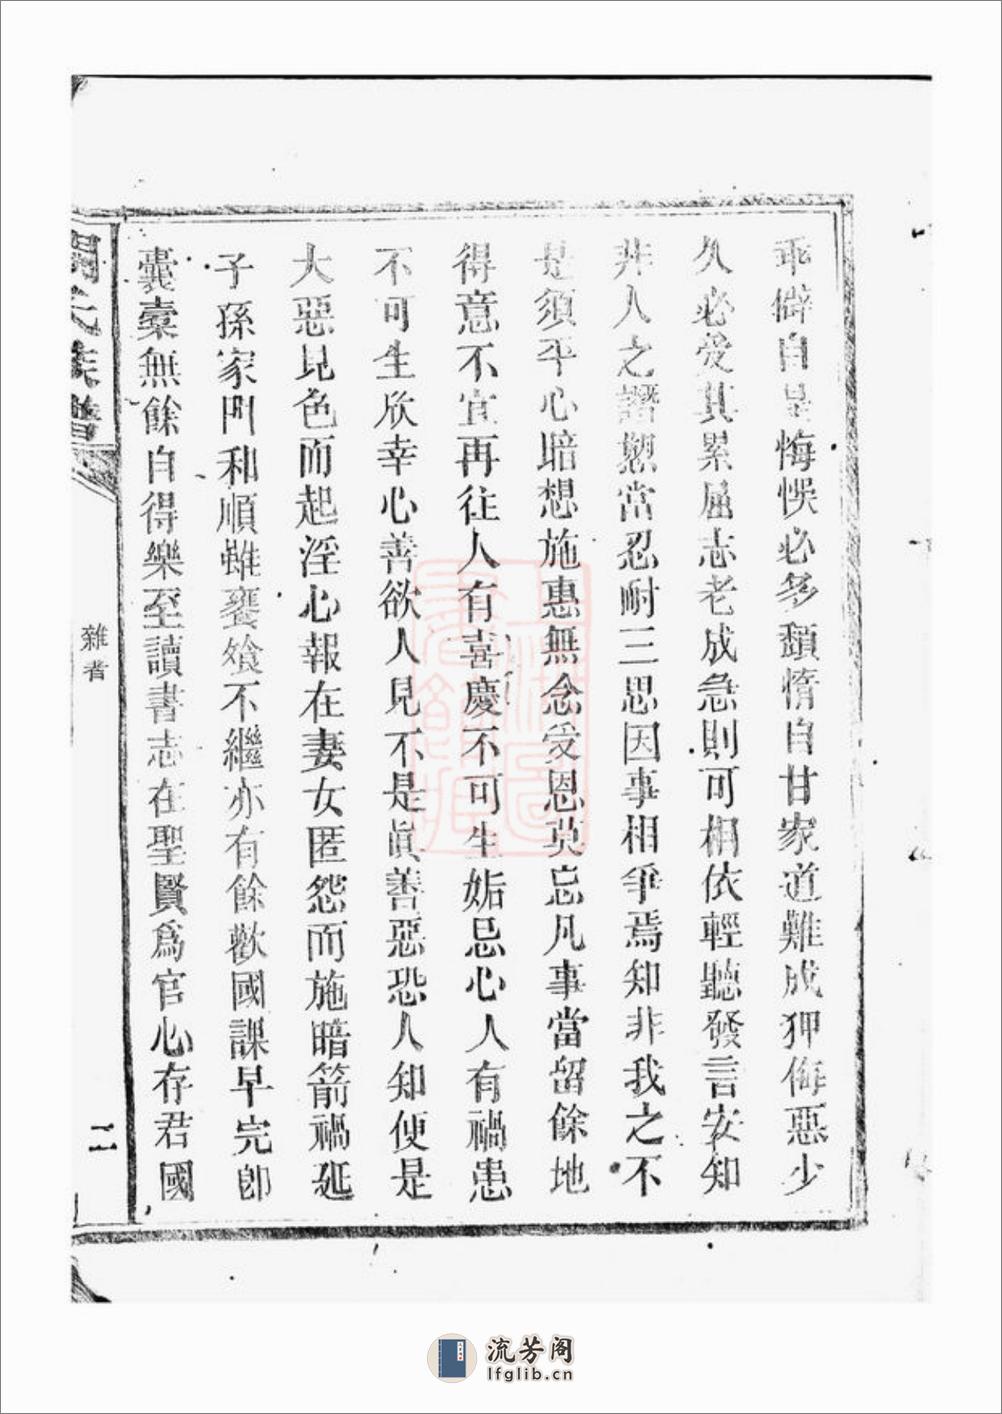 乖僻自是悔悞必多頽惰自甘家道難成狎侮惡少
久必受其累屈志老成急則可相依輕聽發言安知
非人之譖愬當忍耐三思因事相爭焉知非我之不
是須平心暗想施惠無念受恩莫忘凡事當留餘地
得意不宜再往人有喜慶不可生妬忌心人有禍患
不可生欣幸心善欲人見不是眞善惡恐人知便是
大惡見色而起淫心報在妻女匿怨而施暗箭禍延
子孫家門和順雖饔飧不繼亦有餘歡國課早完卽
囊橐無餘自得樂至讀書志在聖賢爲官心存君國
氏族譜
雜著
二
流芳阁
lfglib.cn